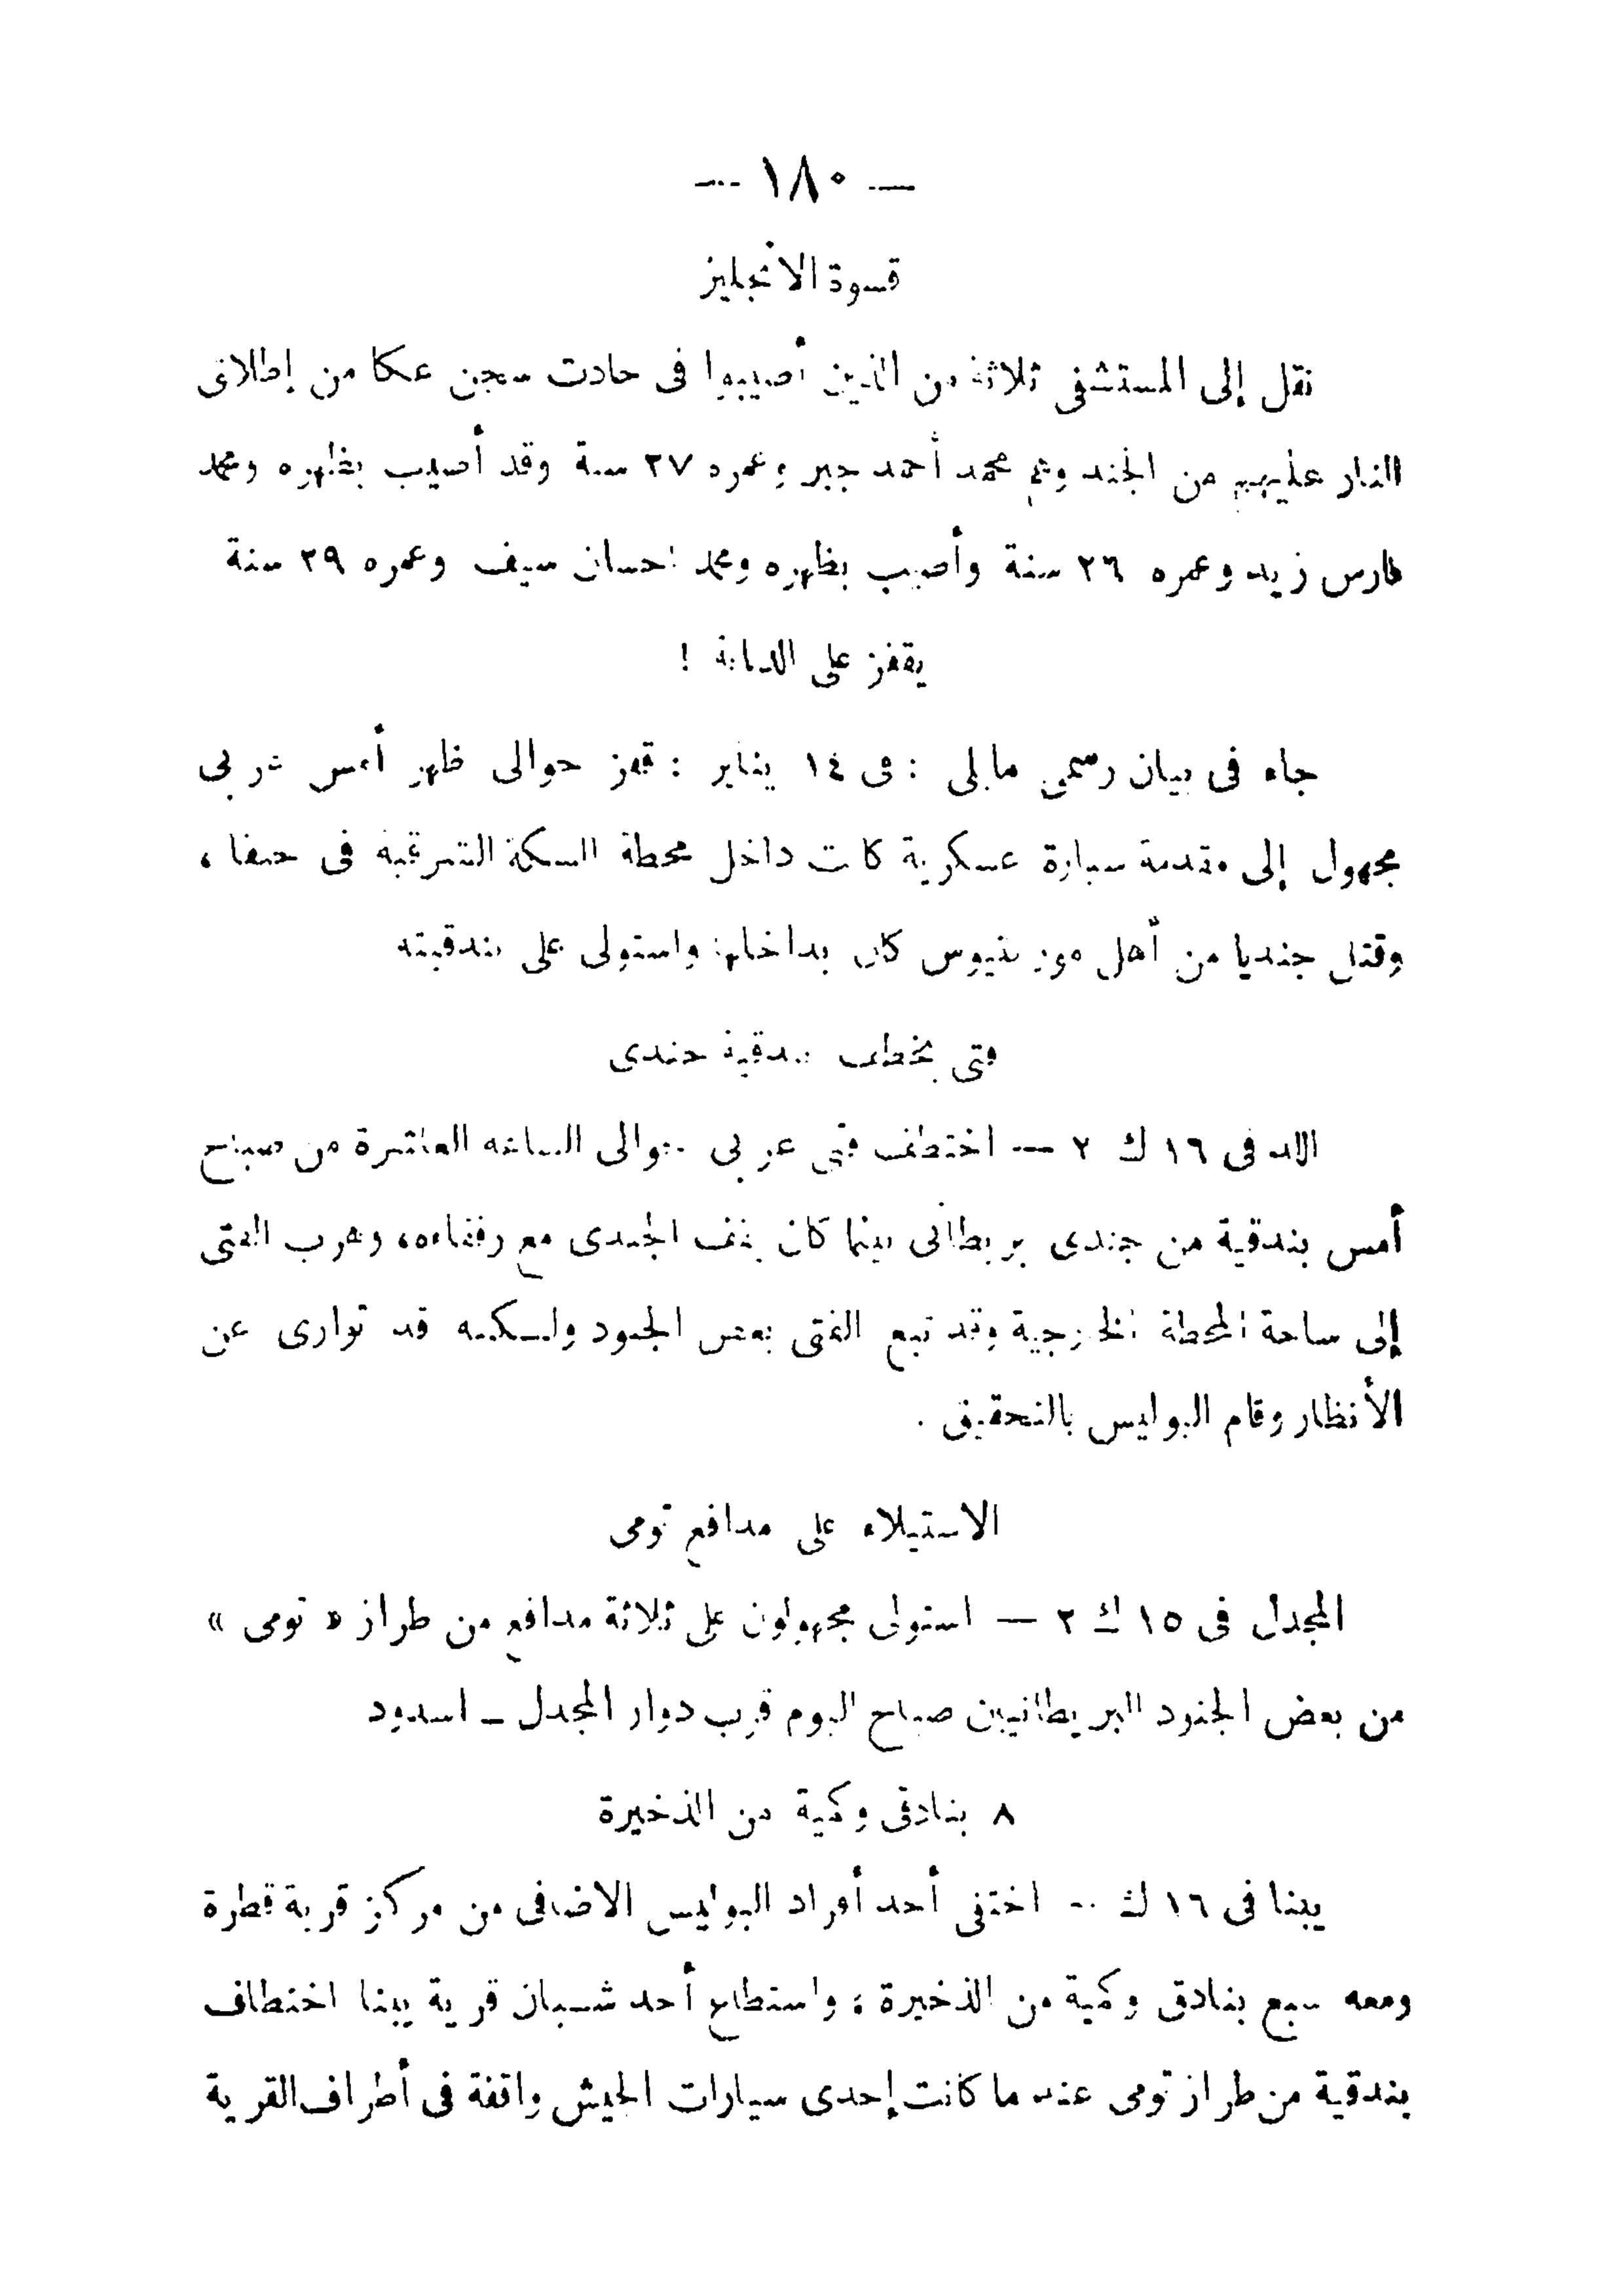 — ١٨٠ —
قسوة الانجليز
نقل إلى المستشفى ثلاثة من الذين أصيبوا فى حادث سجن عكا من إطلاق
النار عليهم من الجند وهم محمد أحمد جبر وعمره ٢٧ سنة وقد أصيب بظهره ومحمد
فارس زيد وعمره ٢٦ سنة وأصيب بظهره ومحمد احسان سيف وعمره ٢٩ سنة
يقفز على الدبابة !
جاء فى بيان رسمى مايلى : فى ١٤ يناير : قفز حوالى ظهر أمس عربى
مجهول إلى مقدمة سيارة عسكرية كانت داخل محطة السكة الشرقية فى حيفا ،
وقتل جنديا من أهل موريتيوس كان بداخلها واستولى على بندقيته
فتى يخطف بندقية جندى
اللد فى ١٦ ك ٢ — اختطف فتى عربى حوالى الساعة العاشرة من صباح
أمس بندقية من جندى بريطانى بينما كان يقف الجندى مع رفقاءه، وهرب الفتى
إلى ساحة المحطة الخارجية وقد تبع الفتى بعض الجنود ولكنه قد توارى عن
الأنظار وقام البوليس بالتحقيق .
الاستيلاء على مدافع تومى
المجدل فى ١٥ ك ٢ — استولى مجهولون على ثلاثة مدافع من طراز « تومى »
من بعض الجنود البريطانيين صباح اليوم قرب دوار المجدل ــ اسدود
٨ بنادق وكمية من الذخيرة
يبنا فى ١٦ ك -- اختفى أحد أفراد البوليس الاضافى من مركز قرية قطرة
ومعه سبع بنادق وكمية من الذخيرة ، واستطاع أحد شبان قرية يبنا اختطاف
بندقية من طراز تومى عند ما كانت إحدى سيارات الجيش واقفة فى أطراف القرية